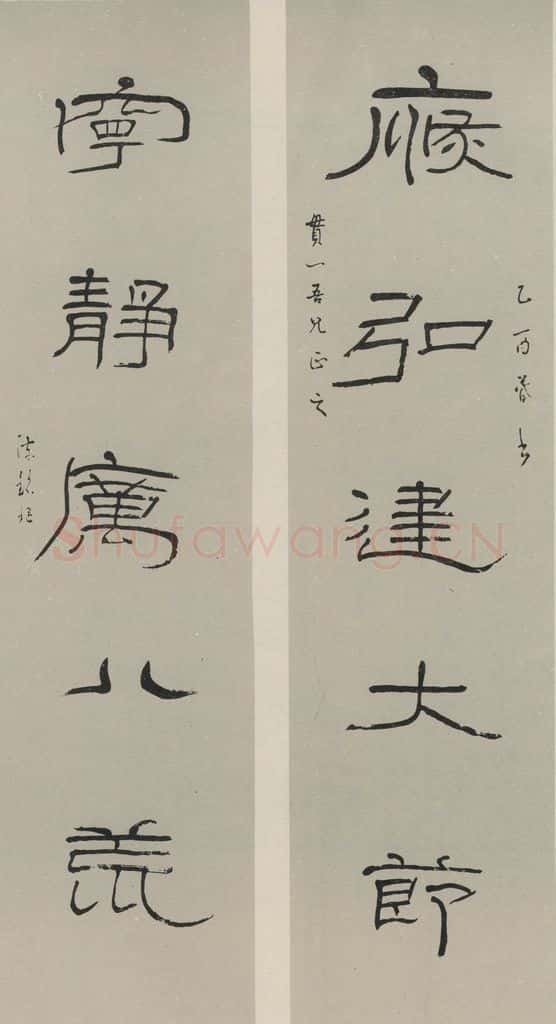 弘建大節
乙酉春
貫一吾兄正之
寧靜厲八荒
陳銘樞
Shufawang.CN